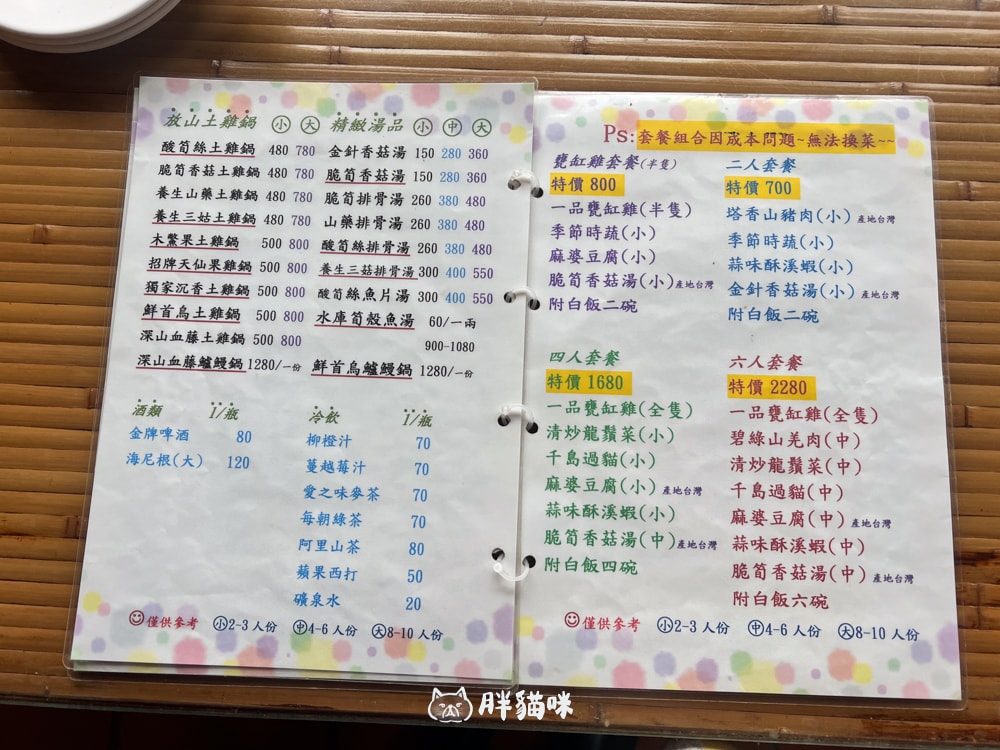 放山土雞鍋 小 大
酸筍絲土雞鍋 480 780
脆筍香菇土雞鍋 480 780
養生山藥土雞鍋 480 780
養生三菇土雞鍋 480 780
木鱉果土雞鍋 500 800
招牌天仙果雞鍋 500 800
獨家沉香土雞鍋 500 800
鮮首烏土雞鍋 500 800
深山血藤土雞鍋 500 800
深山血藤鱸鰻鍋 1280/一份
精緻湯品 小 中 大
金針香菇湯 150 280 360
脆筍香菇湯 150 280 360
脆筍排骨湯 260 380 480
山藥排骨湯 260 380 480
酸筍絲排骨湯 260 380 480
養生三菇排骨湯 300 400 550
酸筍絲魚片湯 300 400 550
水庫筍殼魚湯 60/一兩
900-1080
鮮首烏鱸鰻鍋 1280/一份
酒類 1/瓶
金牌啤酒 80
海尼根(大) 120
冷飲 1/瓶
柳橙汁 70
蔓越莓汁 70
愛之味麥茶 70
每朝綠茶 70
阿里山茶 80
蘋果西打 50
礦泉水 20
僅供參考 小2-3 人份 中4-6 人份 大8-10 人份
Ps:套餐組合因成本問題~無法換菜~~
甕缸雞套餐(半隻)
特價 800
一品甕缸雞(半隻)
季節時蔬(小)
麻婆豆腐(小)
脆筍香菇湯(小)產地台灣
附白飯二碗
二人套餐
特價 700
塔香山豬肉(小)產地台灣
季節時蔬(小)
蒜味酥溪蝦(小)
金針香菇湯(小)產地台灣
附白飯二碗
四人套餐
特價 1680
一品甕缸雞(全隻)
清炒龍鬚菜(小)
千島過貓(小)
麻婆豆腐(小)產地台灣
蒜味酥溪蝦(小)
脆筍香菇湯(中)產地台灣
附白飯四碗
六人套餐
特價 2280
一品甕缸雞(全隻)
碧綠山羌肉(中)
清炒龍鬚菜(中)
千島過貓(中)
麻婆豆腐(中)產地台灣
蒜味酥溪蝦(中)
脆筍香菇湯(中)產地台灣
附白飯六碗
僅供參考 小2-3 人份 中4-6 人份 大8-10 人份
胖貓咪